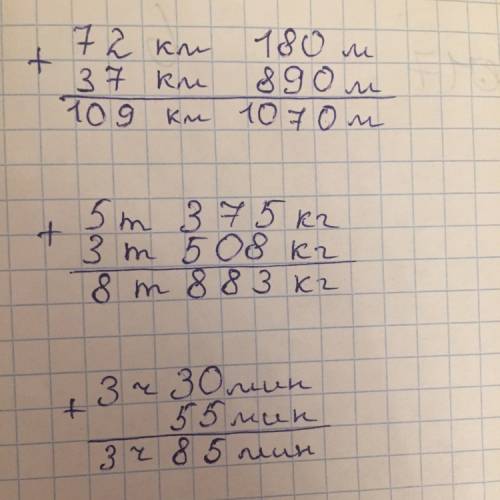 + 72 км 180 м
37 км 890 м
109 км 1070 м
+ 5 т 375 кг
3 т 508 кг
8 т 883 кг
+ 3 ч 30 мин
55 мин
3 ч 85 мин